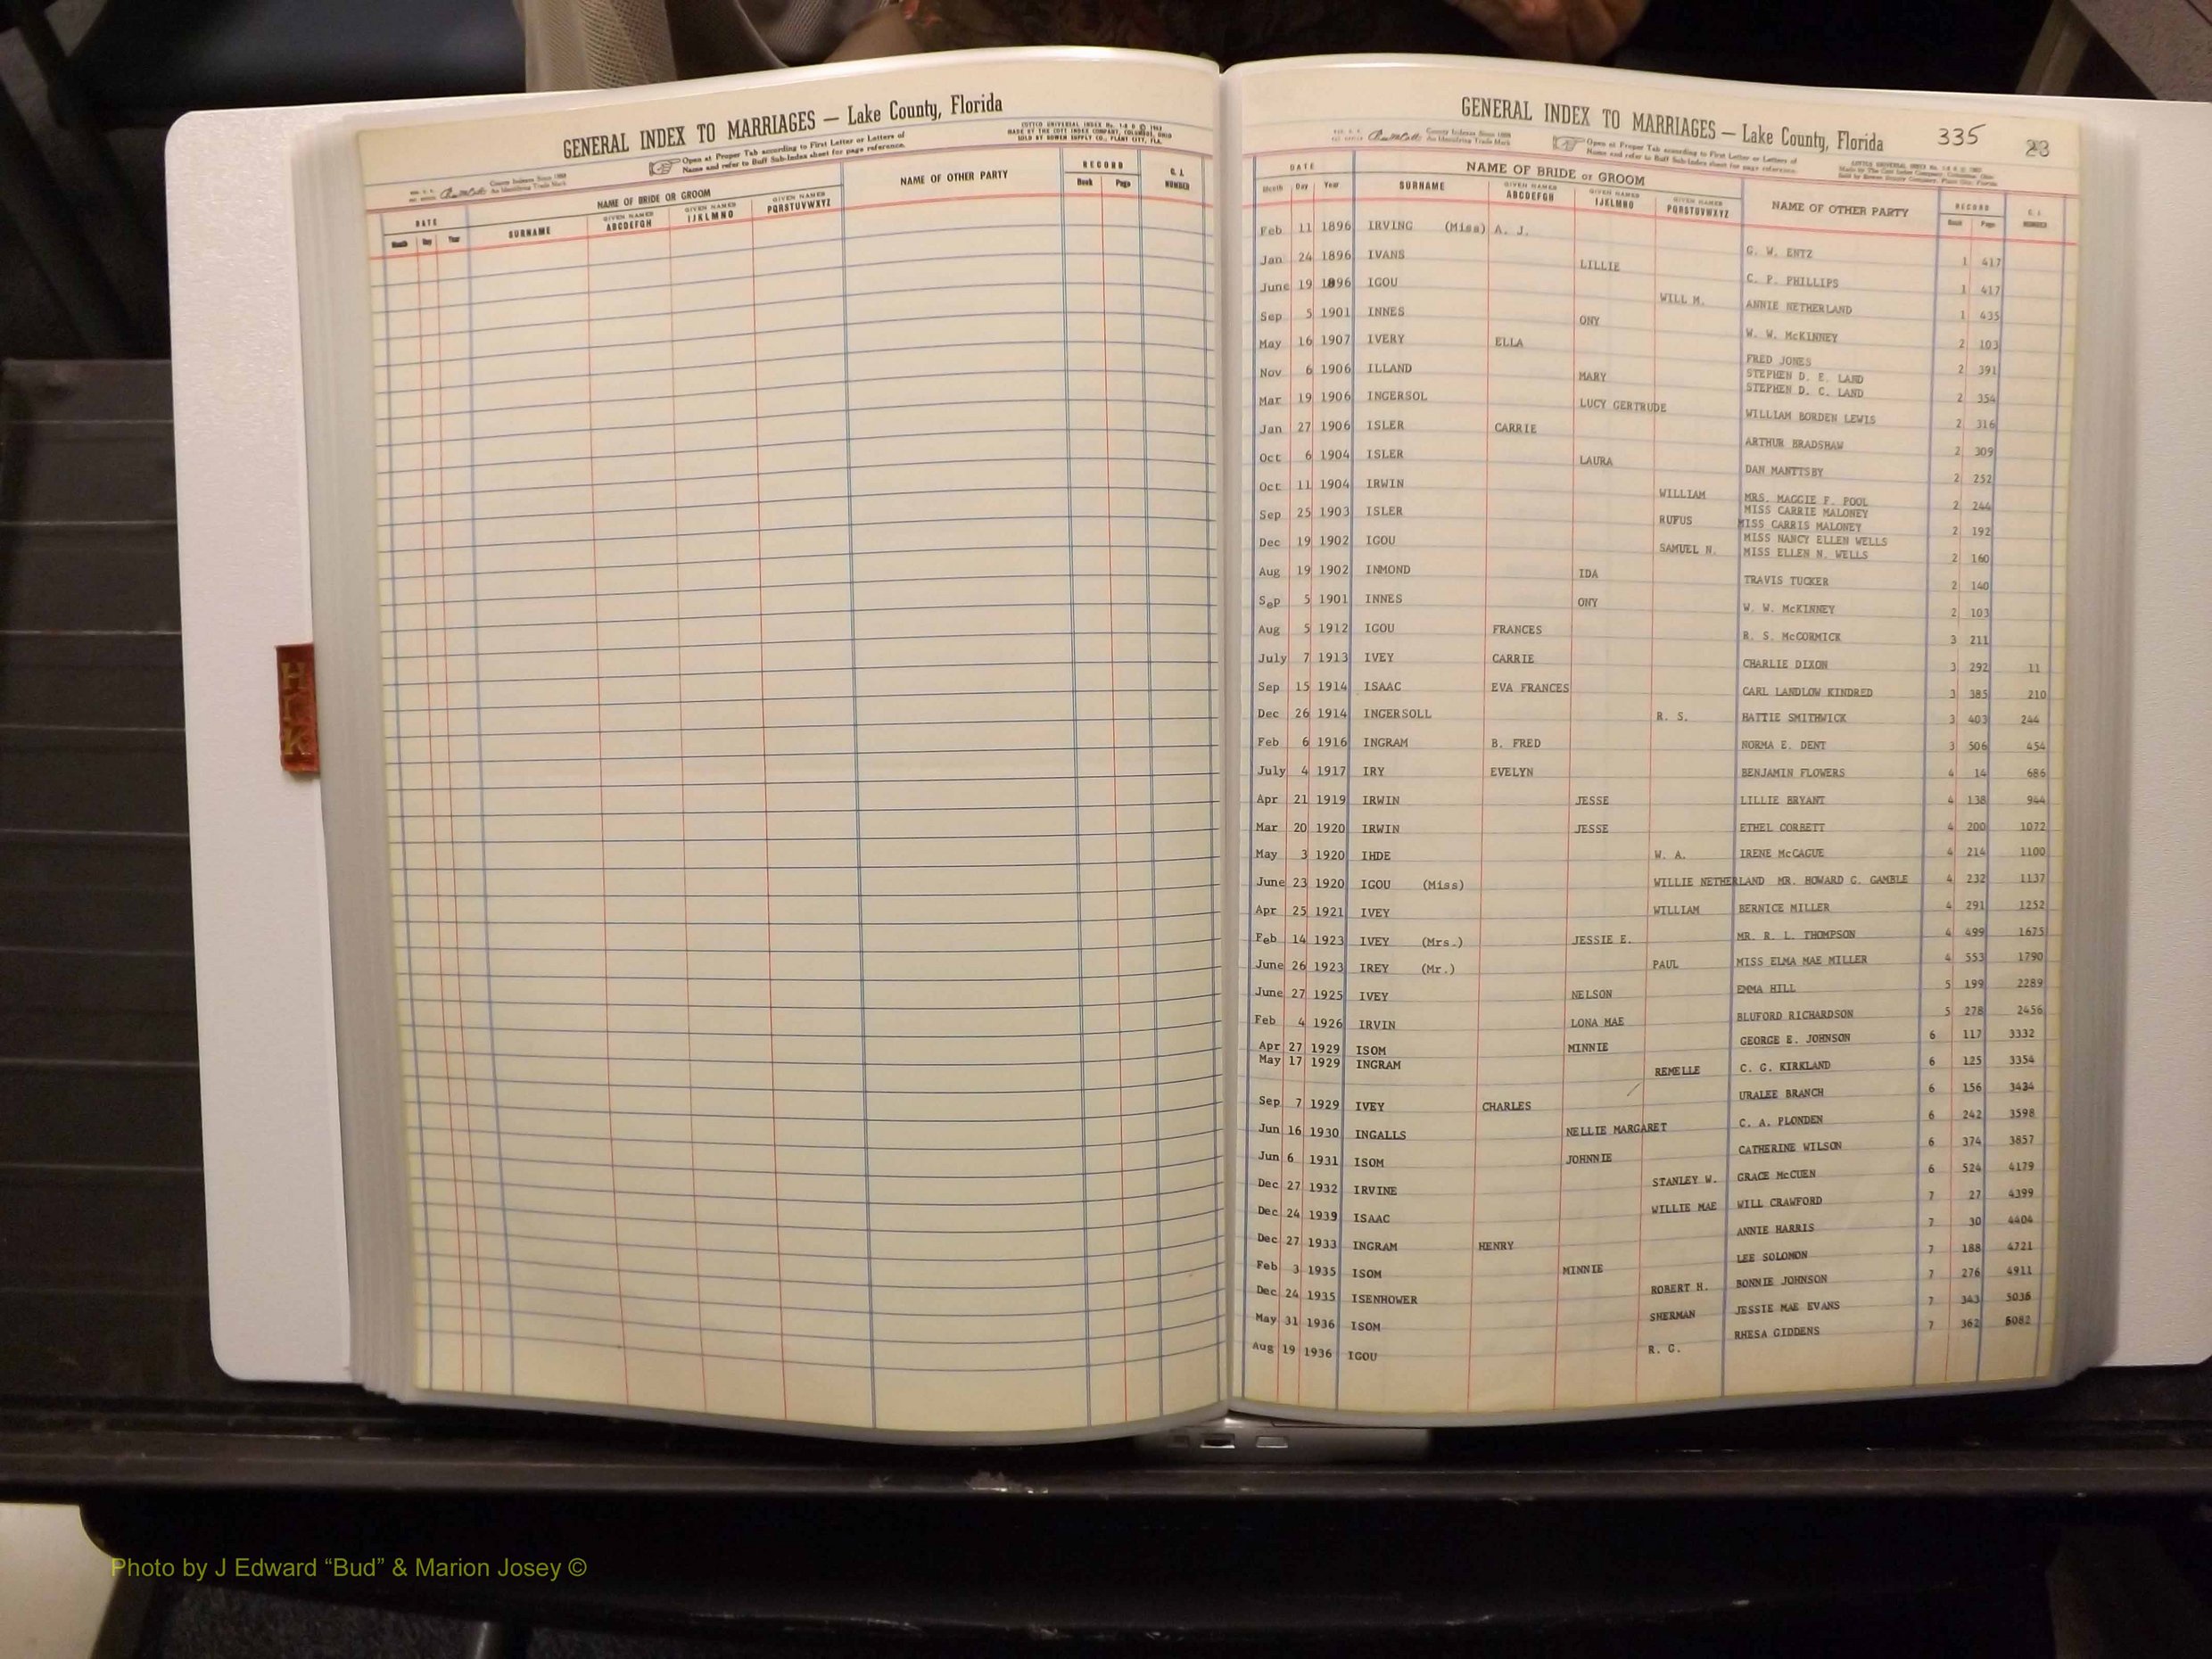 GENERAL INDEX TO MARRIAGES — Lake County, Florida
Open at Proper Tab according to First Letter or Letters of
Name and refer to Buff Sub-Index sheet for page reference.
COTTCO UNIVERSAL INDEX
MADE BY THE COTT INDEX COMPANY, COLUMBUS, OHIO
SOLD BY BOWEN SUPPLY CO., PLANT CITY, FLA.
County Indexes Since 1888
An Identifying Trade Mark
DATE NAME OF BRIDE OR GROOM NAME OF OTHER PARTY RECORD
Month Day Year SURNAME GIVEN NAMES ABCDEFGH GIVEN NAMES IJKLMNO GIVEN NAMES PQRSTUVWXYZ Book Page NUMBER
H I K
GENERAL INDEX TO MARRIAGES — Lake County, Florida 335 23
County Indexes Since 1888
An Identifying Trade Mark
Open at Proper Tab according to First Letter or Letters of
Name and refer to Buff Sub-Index sheet for page reference.
DATE NAME OF BRIDE or GROOM NAME OF OTHER PARTY RECORD
Month Day Year SURNAME GIVEN NAMES ABCDEFGH GIVEN NAMES IJKLMNO GIVEN NAMES PQRSTUVWXYZ Book Page NUMBER
Feb 11 1896 IRVING (Miss) A. J. G. W. ENTZ 1 417
Jan 24 1896 IVANS LILLIE C. P. PHILLIPS 1 417
June 19 1896 IGOU WILL M. ANNIE NETHERLAND 1 435
Sep 5 1901 INNES ONY W. W. McKINNEY 2 103
May 16 1907 IVERY ELLA FRED JONES 2 391
Nov 6 1906 ILLAND MARY STEPHEN D. E. LAND
STEPHEN D. C. LAND 2 354
Mar 19 1906 INGERSOL LUCY GERTRUDE WILLIAM BORDEN LEWIS 2 316
Jan 27 1906 ISLER CARRIE ARTHUR BRADSHAW 2 309
Oct 6 1904 ISLER LAURA DAN MANTTSBY 2 252
Oct 11 1904 IRWIN WILLIAM MRS. MAGGIE F. POOL 2 244
Sep 25 1903 ISLER RUFUS MISS CARRIE MALONEY
MISS CARRIS MALONEY 2 192
Dec 19 1902 IGOU SAMUEL N. MISS NANCY ELLEN WELLS
MISS ELLEN N. WELLS 2 160
Aug 19 1902 INMOND IDA TRAVIS TUCKER 2 140
Sep 5 1901 INNES ONY W. W. McKINNEY 2 103
Aug 5 1912 IGOU FRANCES R. S. McCORMICK 3 211
July 7 1913 IVEY CARRIE CHARLIE DIXON 3 292 11
Sep 15 1914 ISAAC EVA FRANCES CARL LANDLOW KINDRED 3 385 210
Dec 26 1914 INGERSOLL R. S. HATTIE SMITHWICK 3 403 244
Feb 6 1916 INGRAM B. FRED NORMA E. DENT 3 506 454
July 4 1917 IRY EVELYN BENJAMIN FLOWERS 4 14 686
Apr 21 1919 IRWIN JESSE LILLIE BRYANT 4 138 944
Mar 20 1920 IRWIN JESSE ETHEL CORBETT 4 200 1072
May 3 1920 IHDE W. A. IRENE McCAGUE 4 214 1100
June 23 1920 IGOU (Miss) WILLIE NETHERLAND MR. HOWARD G. GAMBLE 4 232 1137
Apr 25 1921 IVEY WILLIAM BERNICE MILLER 4 291 1252
Feb 14 1923 IVEY (Mrs.) JESSIE E. MR. R. L. THOMPSON 4 499 1675
June 26 1923 IREY (Mr.) PAUL MISS ELMA MAE MILLER 4 553 1790
June 27 1925 IVEY NELSON EMMA HILL 5 199 2289
Feb 4 1926 IRVIN LONA MAE BLUFORD RICHARDSON 5 278 2456
Apr 27 1929 ISOM MINNIE GEORGE E. JOHNSON 6 117 3332
May 17 1929 INGRAM REMELLE C. G. KIRKLAND 6 125 3354
Sep 7 1929 IVEY CHARLES URALEE BRANCH 6 156 3424
Jun 16 1930 INGALLS NELLIE MARGARET C. A. PLONDEN 6 242 3598
Jun 6 1931 ISOM JOHNNIE CATHERINE WILSON 6 374 3857
Dec 27 1932 IRVINE STANLEY W. GRACE McCUEN 6 524 4179
Dec 24 1939 ISAAC WILLIE MAE WILL CRAWFORD 7 27 4399
Dec 27 1933 INGRAM HENRY ANNIE HARRIS 7 30 4404
Feb 3 1935 ISOM MINNIE LEE SOLOMON 7 188 4721
Dec 24 1935 ISENHOWER ROBERT H. BONNIE JOHNSON 7 276 4911
May 31 1936 ISOM SHERMAN JESSIE MAE EVANS 7 343 5036
Aug 19 1936 IGOU R. G. RHESA GIDDENS 7 362 5082
Photo by J Edward “Bud” & Marion Josey ©